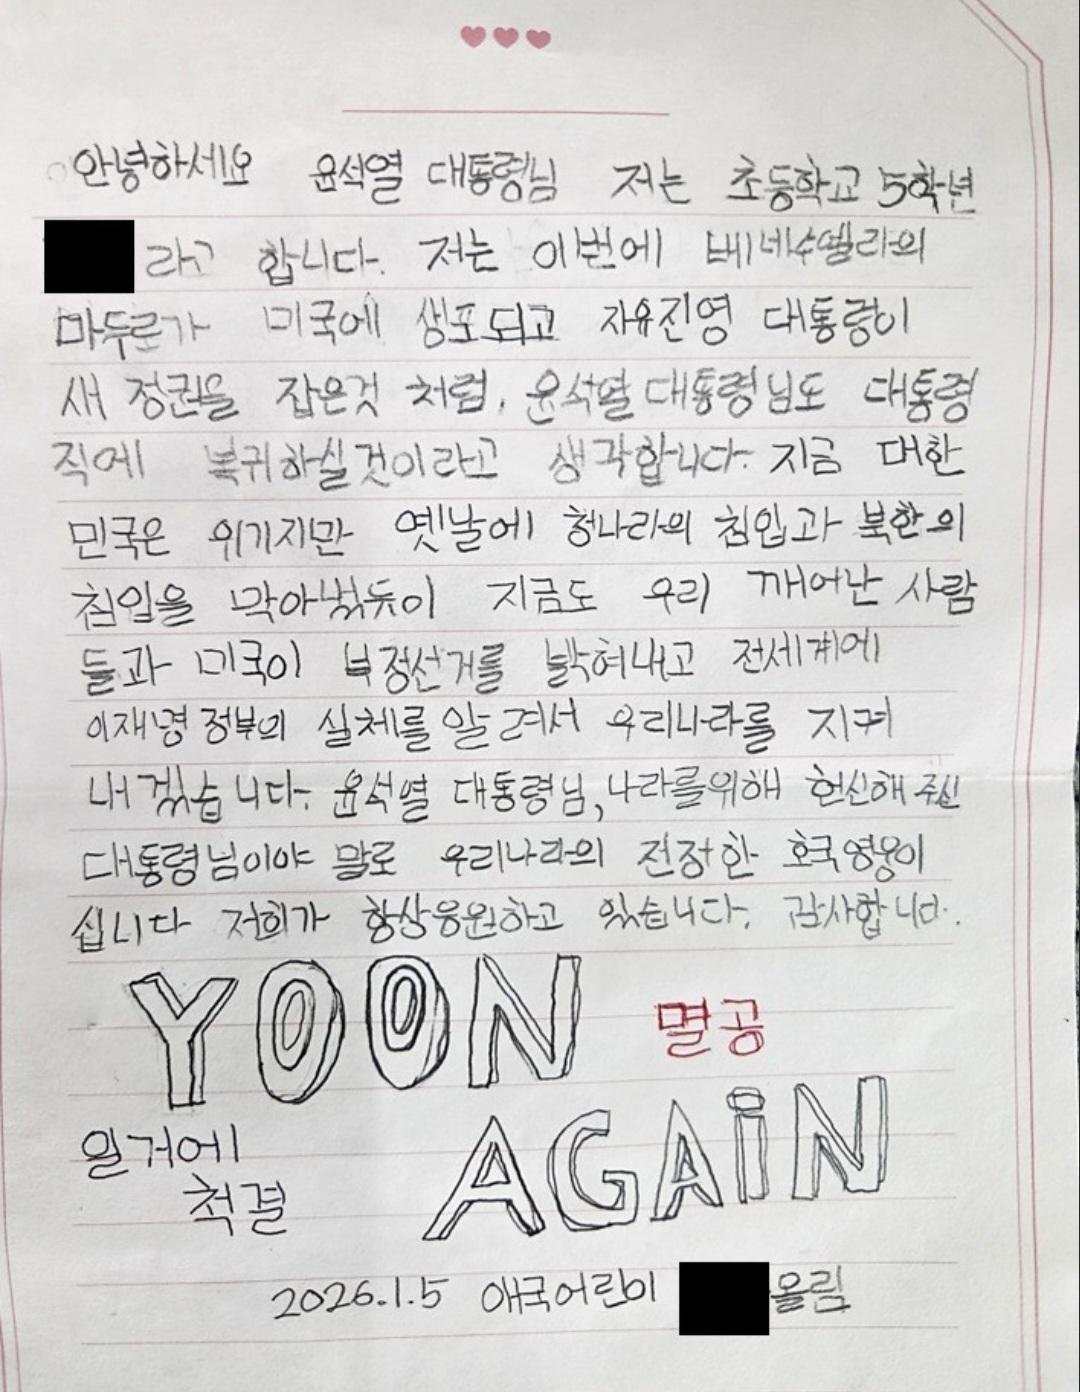 안녕하세요 윤석열 대통령님 저는 초등학교 5학년
라고 합니다. 저는 이번에 베네수엘라의
마두로가 미국에 생포되고 자유진영 대통령이
새 정권을 잡은것 처럼, 윤석열 대통령님도 대통령
직에 복귀하실것이라고 생각합니다. 지금 대한
민국은 위기지만 옛날에 청나라의 침입과 북한의
침입을 막아냈듯이 지금도 우리 깨어난 사람
들과 미국이 부정선거를 밝혀내고 전세계에
이재명 정부의 실체를 알려서 우리나라를 지켜
내겠습니다. 윤석열 대통령님, 나라를위해 헌신해 주신
대통령님이야 말로 우리나라의 진정한 호국영웅이
십니다 저희가 항상응원하고 있습니다. 감사합니다.
YOON 멸공
일거에 AGAiN
척결
2026.1.5 애국어린이 올림